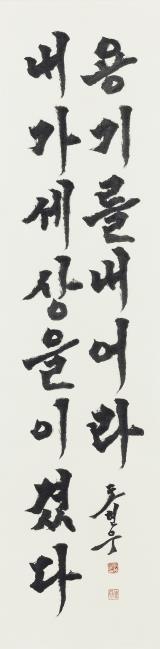 용기를내어라
내가세상을이겼다